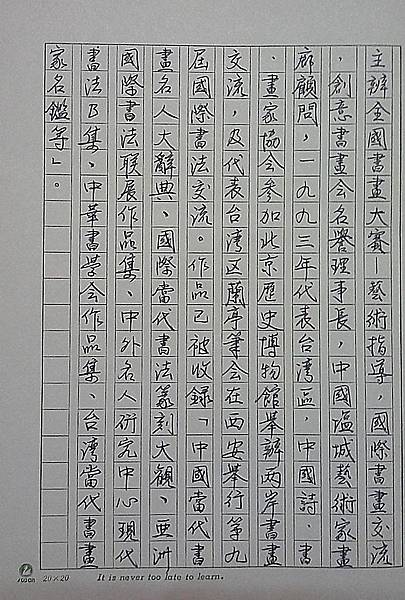 主辦全國書畫大賽—藝術指導，國際書畫交流
，創意書畫会名譽理事長，中國塩城藝術家畫
廊顧問，一九九三年代表台湾區，中國詩．書
．畫家協会參加北京歷史博物館舉辦两岸書畫
交流，及代表台湾区蘭亭筆会在西安舉行第九
屆國際書法交流。作品已被收録「中國當代書
畫名人大辭典、國際當代書法篆刻大觀、亞洲
國際書法联展作品集、中外名人研究中心現代
書法B集、中華書学会作品集、台湾當代書畫
家名鑑等」。
20×20
It is never too late to learn.